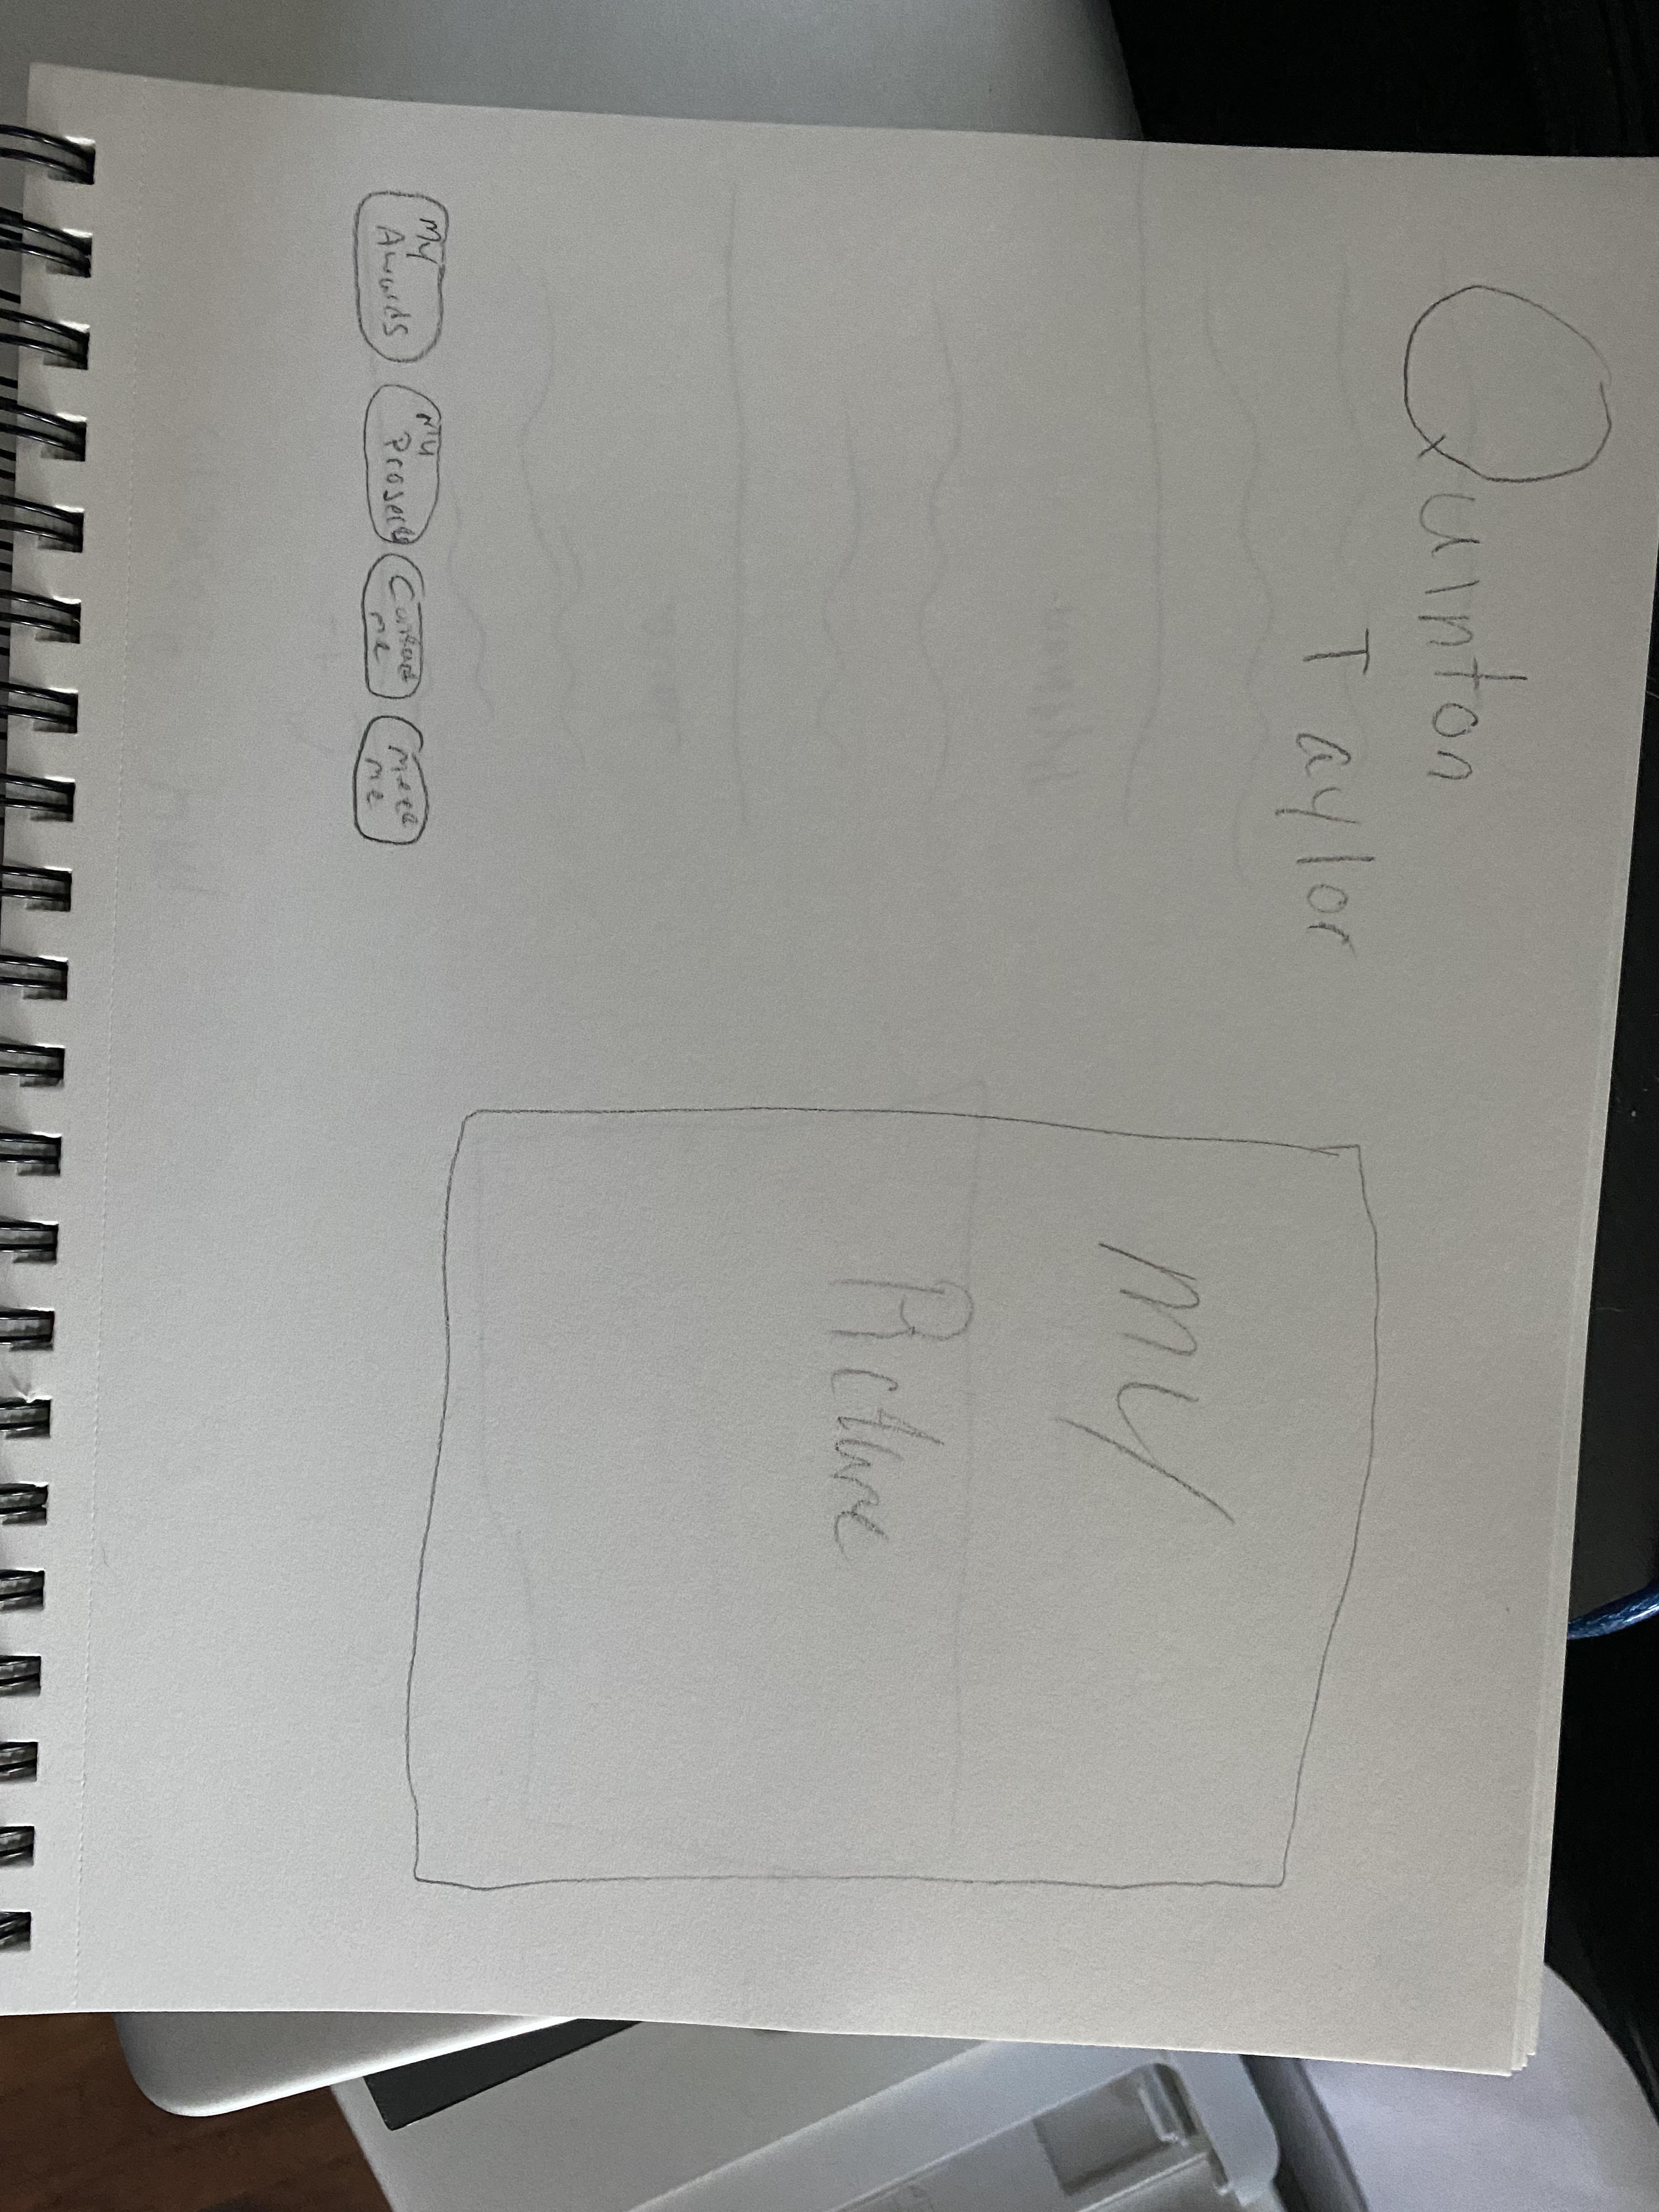 Quinton
Taylor
My
Picture
My
Awards
My
Projects
Contact
me
Meet
me